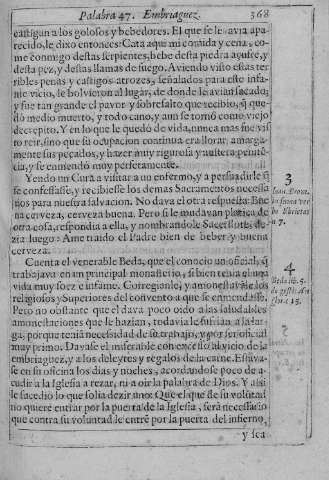 Palabra 47. Embriaguez. 368
castigan a los golosos y bebedores. El que se le avia apa-
recido, le dixo entonces: Cata aqui mi comida y cena, co-
me conmigo destas serpientes, bebe desta piedra açufre, y
desta pez, y destas llamas de fuego. Aviendo visto estas ter-
ribles penas y castigos atrozes, señalados para este infa-
me vicio, le bolvieron al lugar, de donde le avian sacado;
y fue tan grande el pavor y sobresalto que recibio, q̃ que-
dò medio muerto, y todo cano, y aun se tornò como viejo
decrepito. Y en lo que le quedò de vida, nunca mas fue vis
to reir, sino que su ocupacion continua era llorar amarga-
mente sus pecados, y hazer muy rigurosa y austera peniten-
cia, y se enmendò muy perfetamente.
Yendo un Cura a visitar a un enfermo, y a persuadirle q̃
se confessasse, y recibiesse los demas Sacramentos necessa-
rios para nuestra salvacion. No dava el otra respuesta: Bue
na cerveza, cerveza buena. Pero si le mudavan platica de
otra cosa, respondia a ella, y nombrandole Sacerdote, de-
zia luego: Ame traido el Padre bien de beber y buena
cerveza.
Cuenta el venerable Beda, que el conocio un oficial, q̃
trabajava en un principal monasterio, si bien tenia
vida muy soez e infame. Corregianle, y amonestavanle los
religiosos y Superiores del convento a que se enmendasse.
Pero no obstante que el dava poco oido a las saludables
amonestaciones que le hazian, todavia le sufrian a la lar-
ga, porque tenia necessidad de su trabajo, y por ser oficial
muy primo. Davase el miserable con excesso al vicio de la
embriaguez, y a los deleytes y regalos de la carne. Estava-
se en su oficina los dias y noches, acordandose poco de a-
cudir a la Iglesia a rezar, ni a oir la palabra de Dios. Y assi
le sucedio lo que solia dezir uno: Que el que de su voluntad
no quiere entrar por la puerta de la Iglesia, serà necessario
que contra su voluntad le entrẽ por la puerta del infierno,
y sea
3
n 7.
4
Beda lib. 5.
de gestis An
glor. c 15.